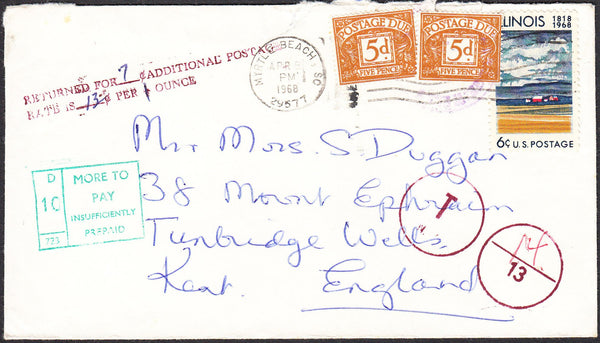 RETURNED FOR 7 ¢ADDITIONAL POSTAGE
RATE IS 13 ¢ PER 1 OUNCE
MYRTLE BEACH, SC
APR
PM
1968
29577
POSTAGE DUE
5d
FIVE PENCE
POSTAGE DUE
5d
FIVE PENCE
ILLINOIS 1818
1968
6¢ U.S. POSTAGE
D
1C
723
MORE TO
PAY
INSUFFICIENTLY
PREPAID
Mr Mrs. S. Duggan
38 Mount Ephraim
Tunbridge Wells
Kent. England
T
14
13